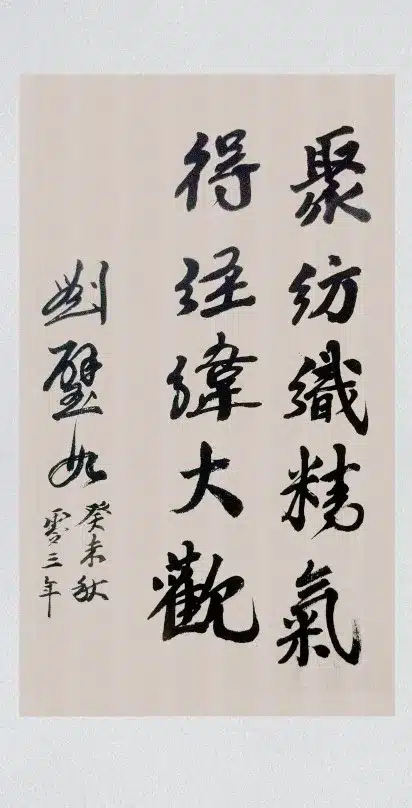 聚纺織精氣
得经緯大觀
劉璧如
癸未秋
零三年